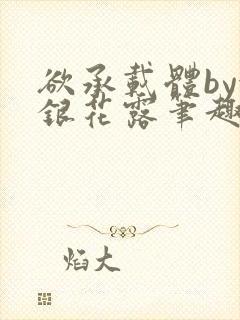 欲承載體by
銀花露筆趣
焰大